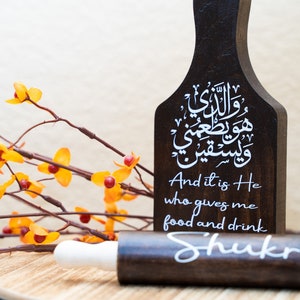 والذي
هو يطعمني
ويسقين
And it is He
who gives me
food and drink
Shukr